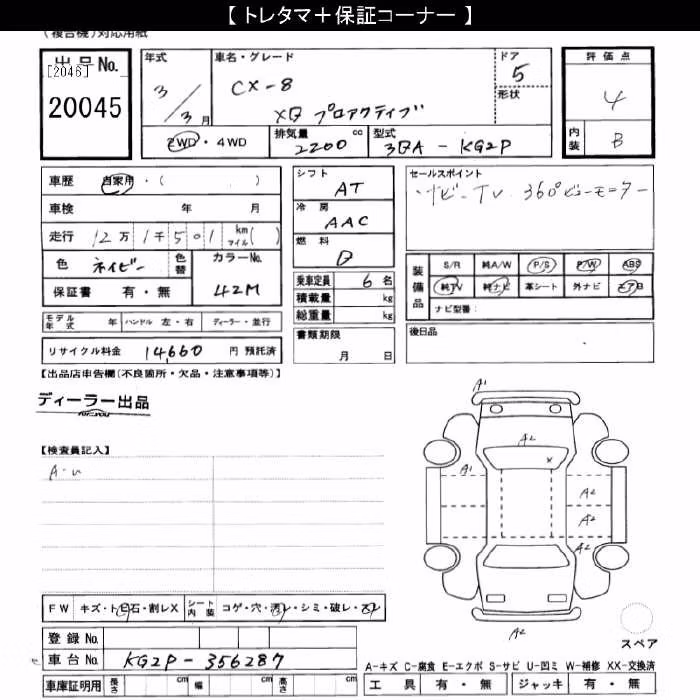 【 トレタマ＋保証コーナー 】
(複合機)対応用紙
出品No.
[2046]
20045
年式
3／3月
車名・グレード
CX-8
XD プロアクティブ
ドア
5
形状
評価点
4
内装
B
2WD・4WD
排気量 2200 cc
型式 3DA - KG2P
車歴 自家用・( )
車検 年 月
走行 12万1千501 km マイル( )
色 ネイビー 色替
カラーNo. 42M
保証書 有・無
モデル年式 年 ハンドル 左・右 ディーラー・並行
リサイクル料金 14,660 円 預託済
シフト AT
冷房 AAC
燃料 D
乗車定員 6 名
積載量 kg
総重量 kg
書類期限
月 日
セールスポイント
ナビ TV 360°ビューモニター
装備品 S/R 純A/W P/S P/W ABS
純TV 純ナビ 革シート 外ナビ エアB
ナビ型番:
後日品
【出品店申告欄(不良箇所・欠品・注意事項等)】
ディーラー出品
【検査員記入】
A・U
A1
A2
A1
A2
A2
A2
A2
FW キズ・ト石・割レX シート内装 コゲ・穴・汚レ・シミ・破レ・スレ
登録No.
車台No. KG2P - 356287
車庫証明用 長さ cm 幅 cm 高さ cm
スペア
A-キズ C-腐食 E-エクボ S-サビ U-凹ミ W-補修 XX-交換済
工具 有・無 ジャッキ 有・無